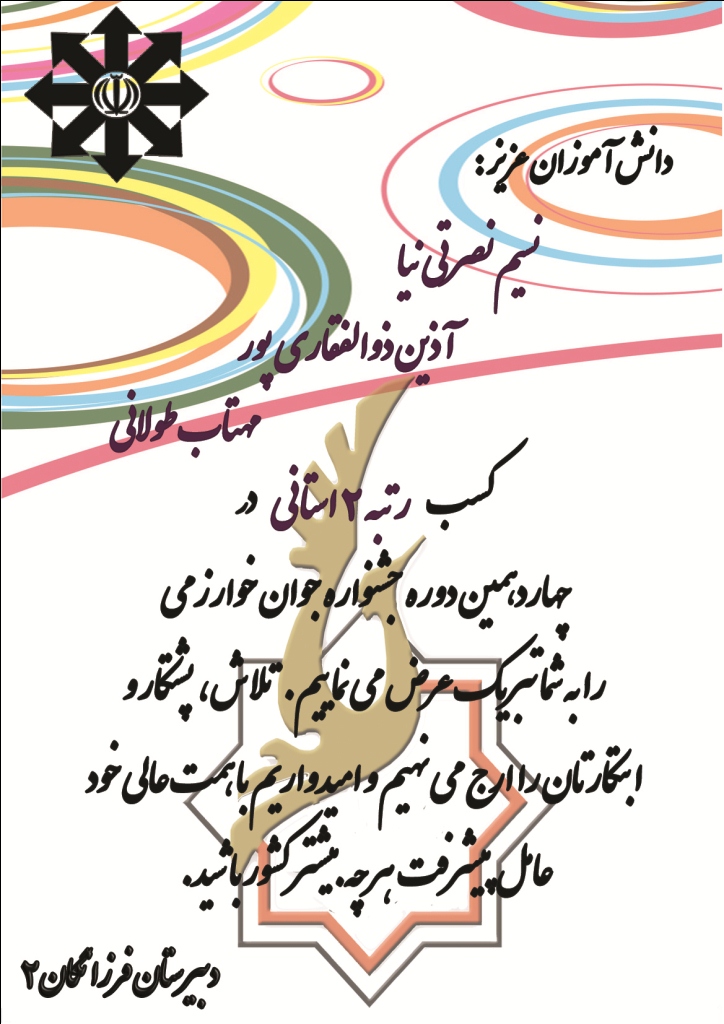 دانش آموزان عزیز:
نسیم نصرتی نیا
آذین ذوالفقاری پور
مهتاب طولانی
کسب رتبه ۲ استانی در
چهاردهمین دوره جشنواره جوان خوارزمی
را به شما تبریک عرض می نماییم. تلاش، پشتکار و
ابتکارتان را ارج می نهیم و امیدواریم با همت عالی خود
عامل پیشرفت هرچه بیشتر کشور باشید.
دبیرستان فرزانگان ۲